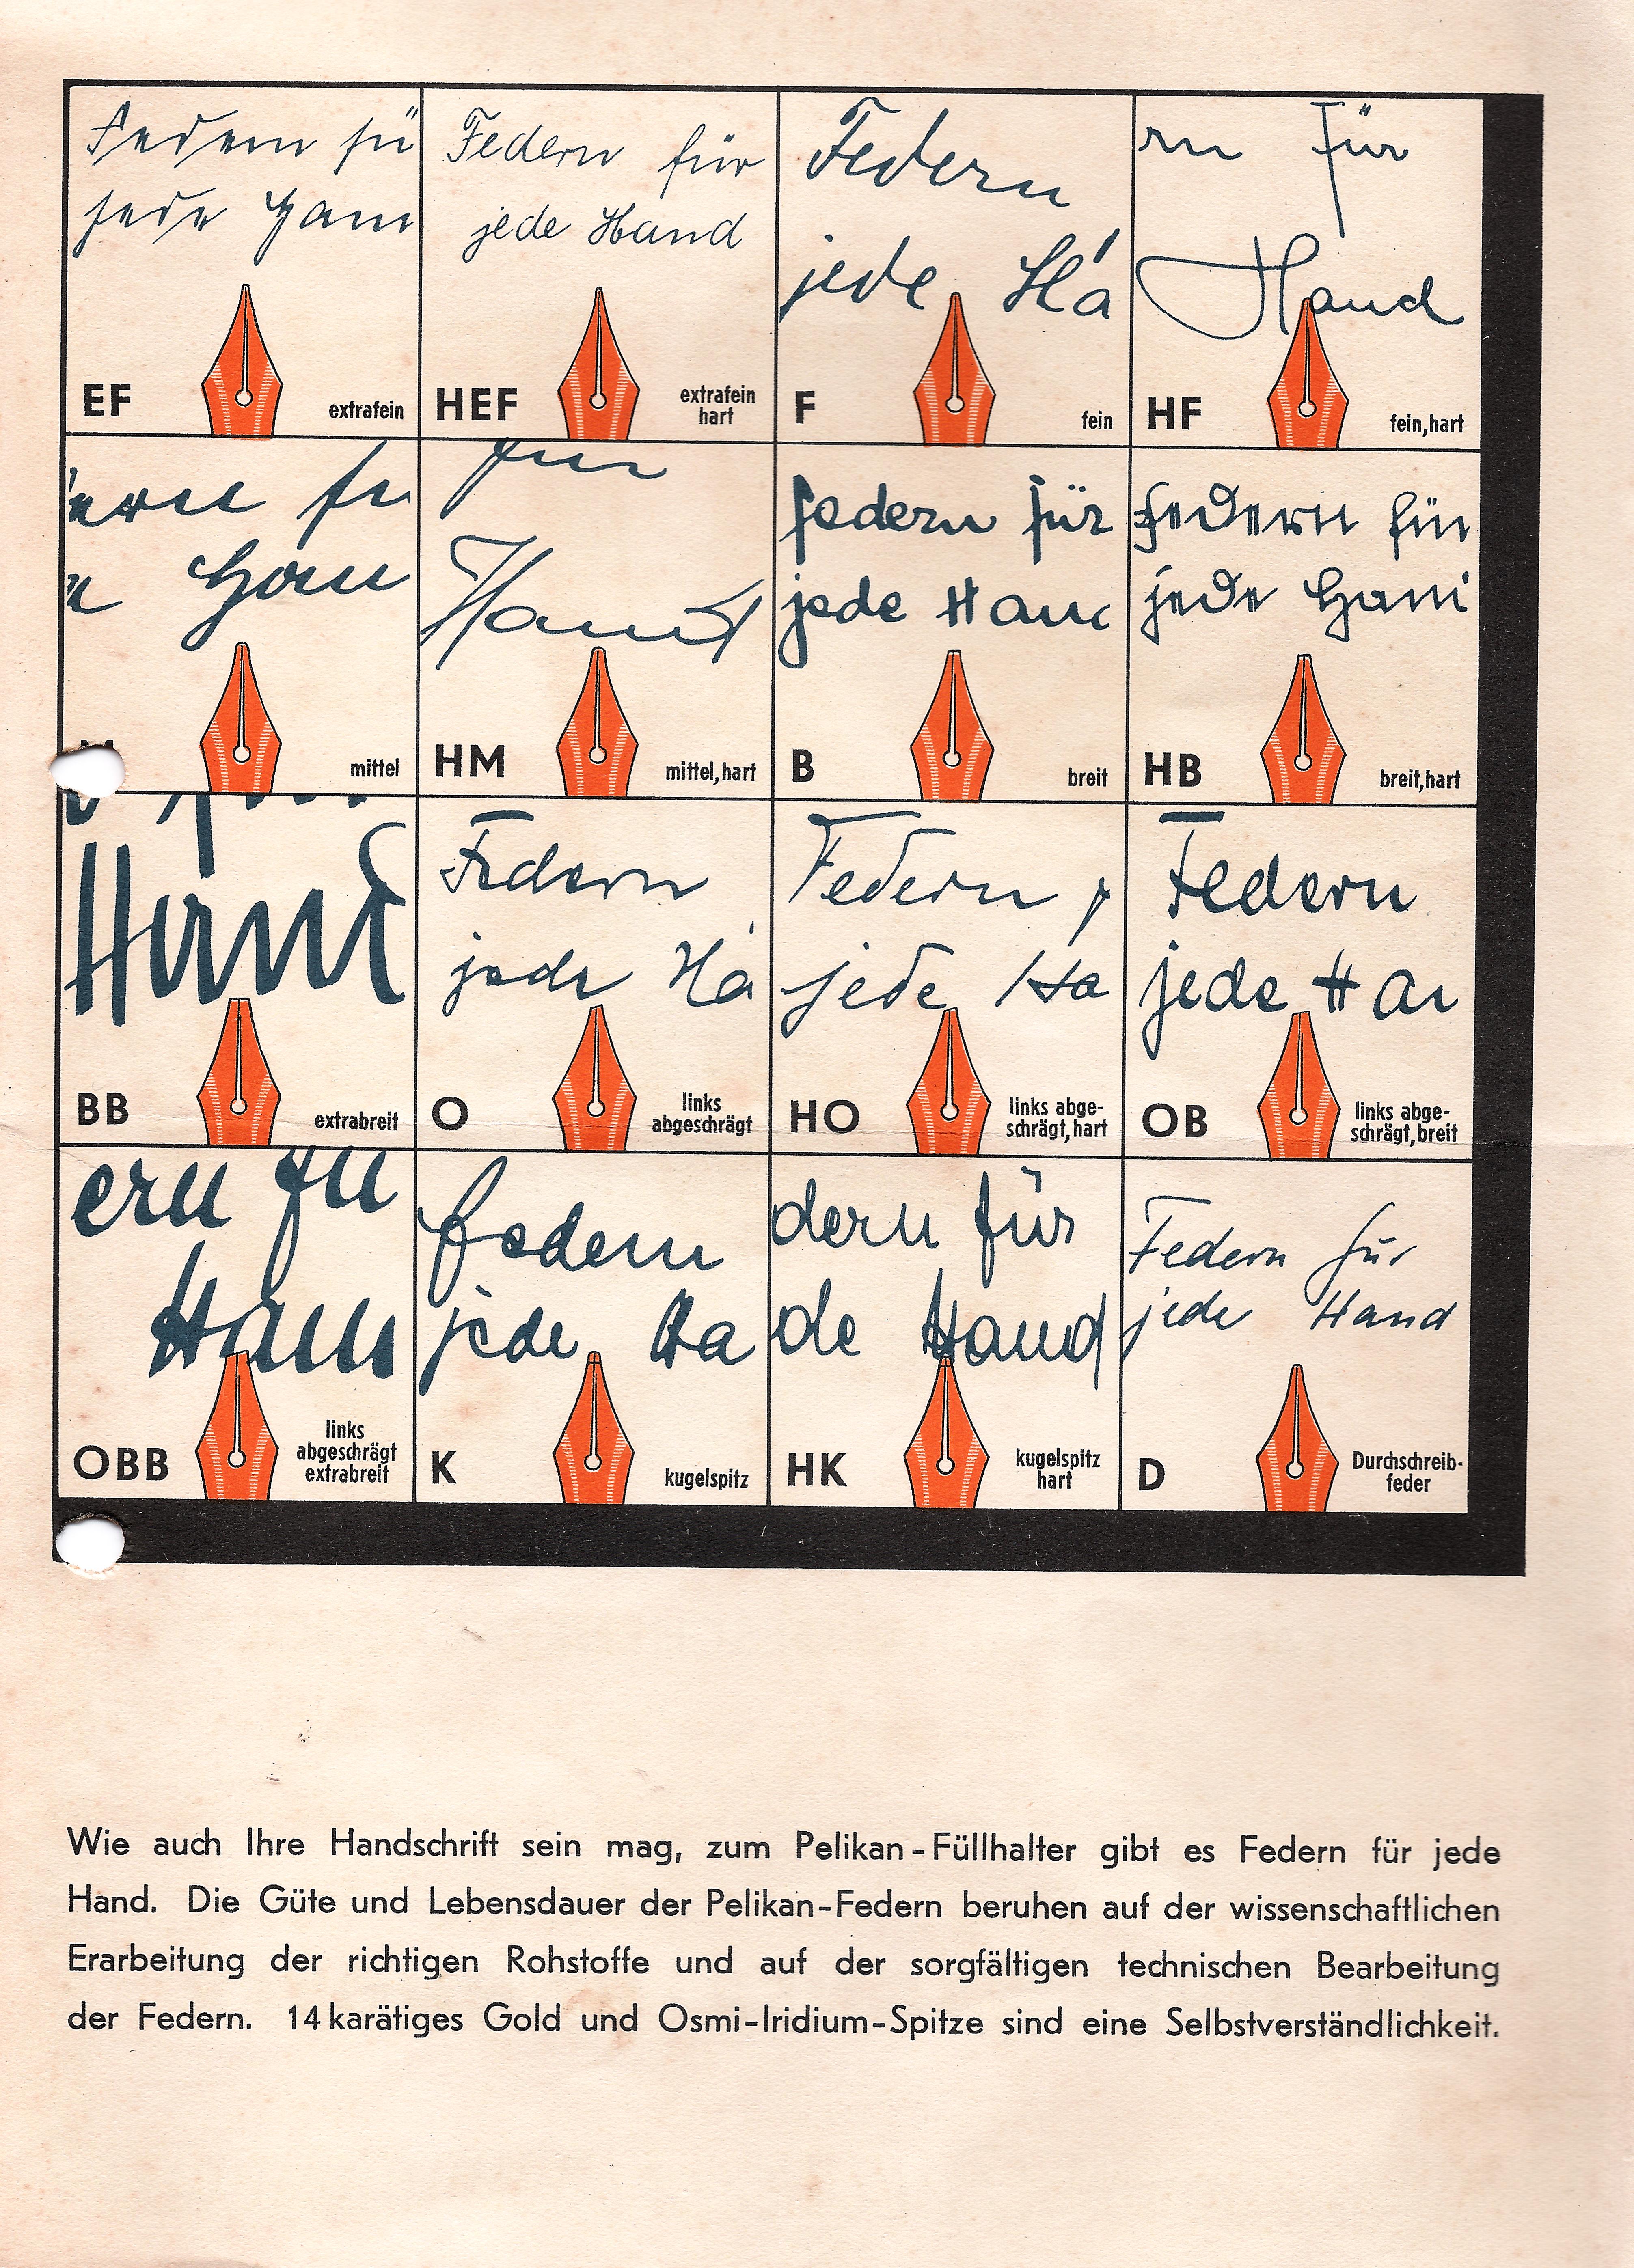 Federn fü
jede Han
EF
extrafein
Federn für
jede Hand
HEF
extrafein
hart
Federn
jede Ha
F
fein
rn für
Hand
HF
fein, hart
ern fü
Han
mittel
für
Hand
HM
mittel, hart
Federn für
jede Han
B
breit
Federn für
jede Han
HB
breit, hart
Hand
BB
extrabreit
Federn
jede Ha
O
links
abgeschrägt
Federn
jede Ha
HO
links abge-
schrägt, hart
Federn
jede Han
OB
links abge-
schrägt, breit
ern fü
Han
OBB
links
abgeschrägt
extrabreit
Federn
jede Ha
K
kugelspitz
dern für
de Hand
HK
kugelspitz
hart
Federn für
jede Hand
D
Durchschreib-
feder
Wie auch Ihre Handschrift sein mag, zum Pelikan-Füllhalter gibt es Federn für jede
Hand. Die Güte und Lebensdauer der Pelikan-Federn beruhen auf der wissenschaftlichen
Erarbeitung der richtigen Rohstoffe und auf der sorgfältigen technischen Bearbeitung
der Federn. 14 karätiges Gold und Osmi-Iridium-Spitze sind eine Selbstverständlichkeit.